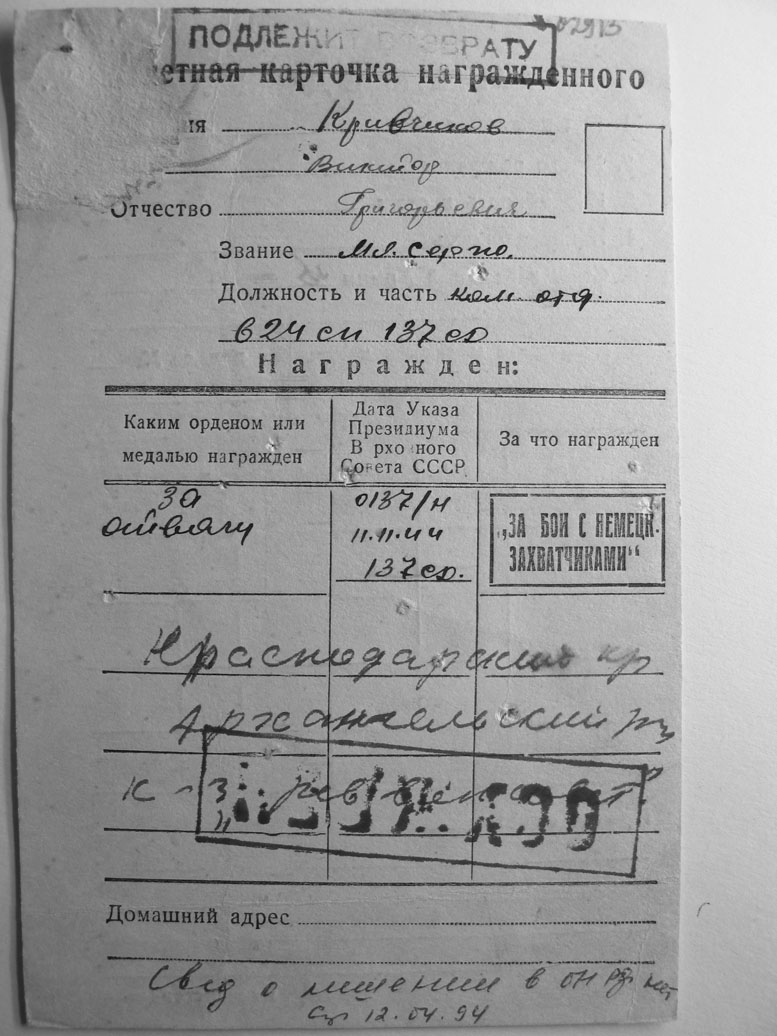 ПОДЛЕЖИТ ВОЗВРАТУ
02913
етная карточка награжденного
ия Кривчиков
Виктор
Отчество Григорьевич
Звание Мл. Серж.
Должность и часть ком. отд.
в 24 сп 137 сд
Награжден:
Каким орденом или медалью награжден
Дата Указа Президиума В рхо ного Совета СССР
За что награжден
За отвагу
0137/н
11.11.44
137 сд.
„ЗА БОИ С НЕМЕЦК.
ЗАХВАТЧИКАМИ“
Краснодарский кр
Архангельский
к-з
Домашний адрес
Свед о лишении в ОН нет
12.04.94